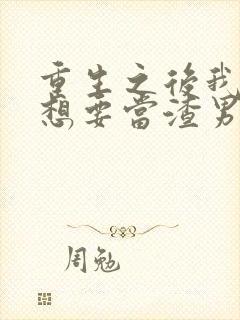 重生之后我
想要当渣男
周勉